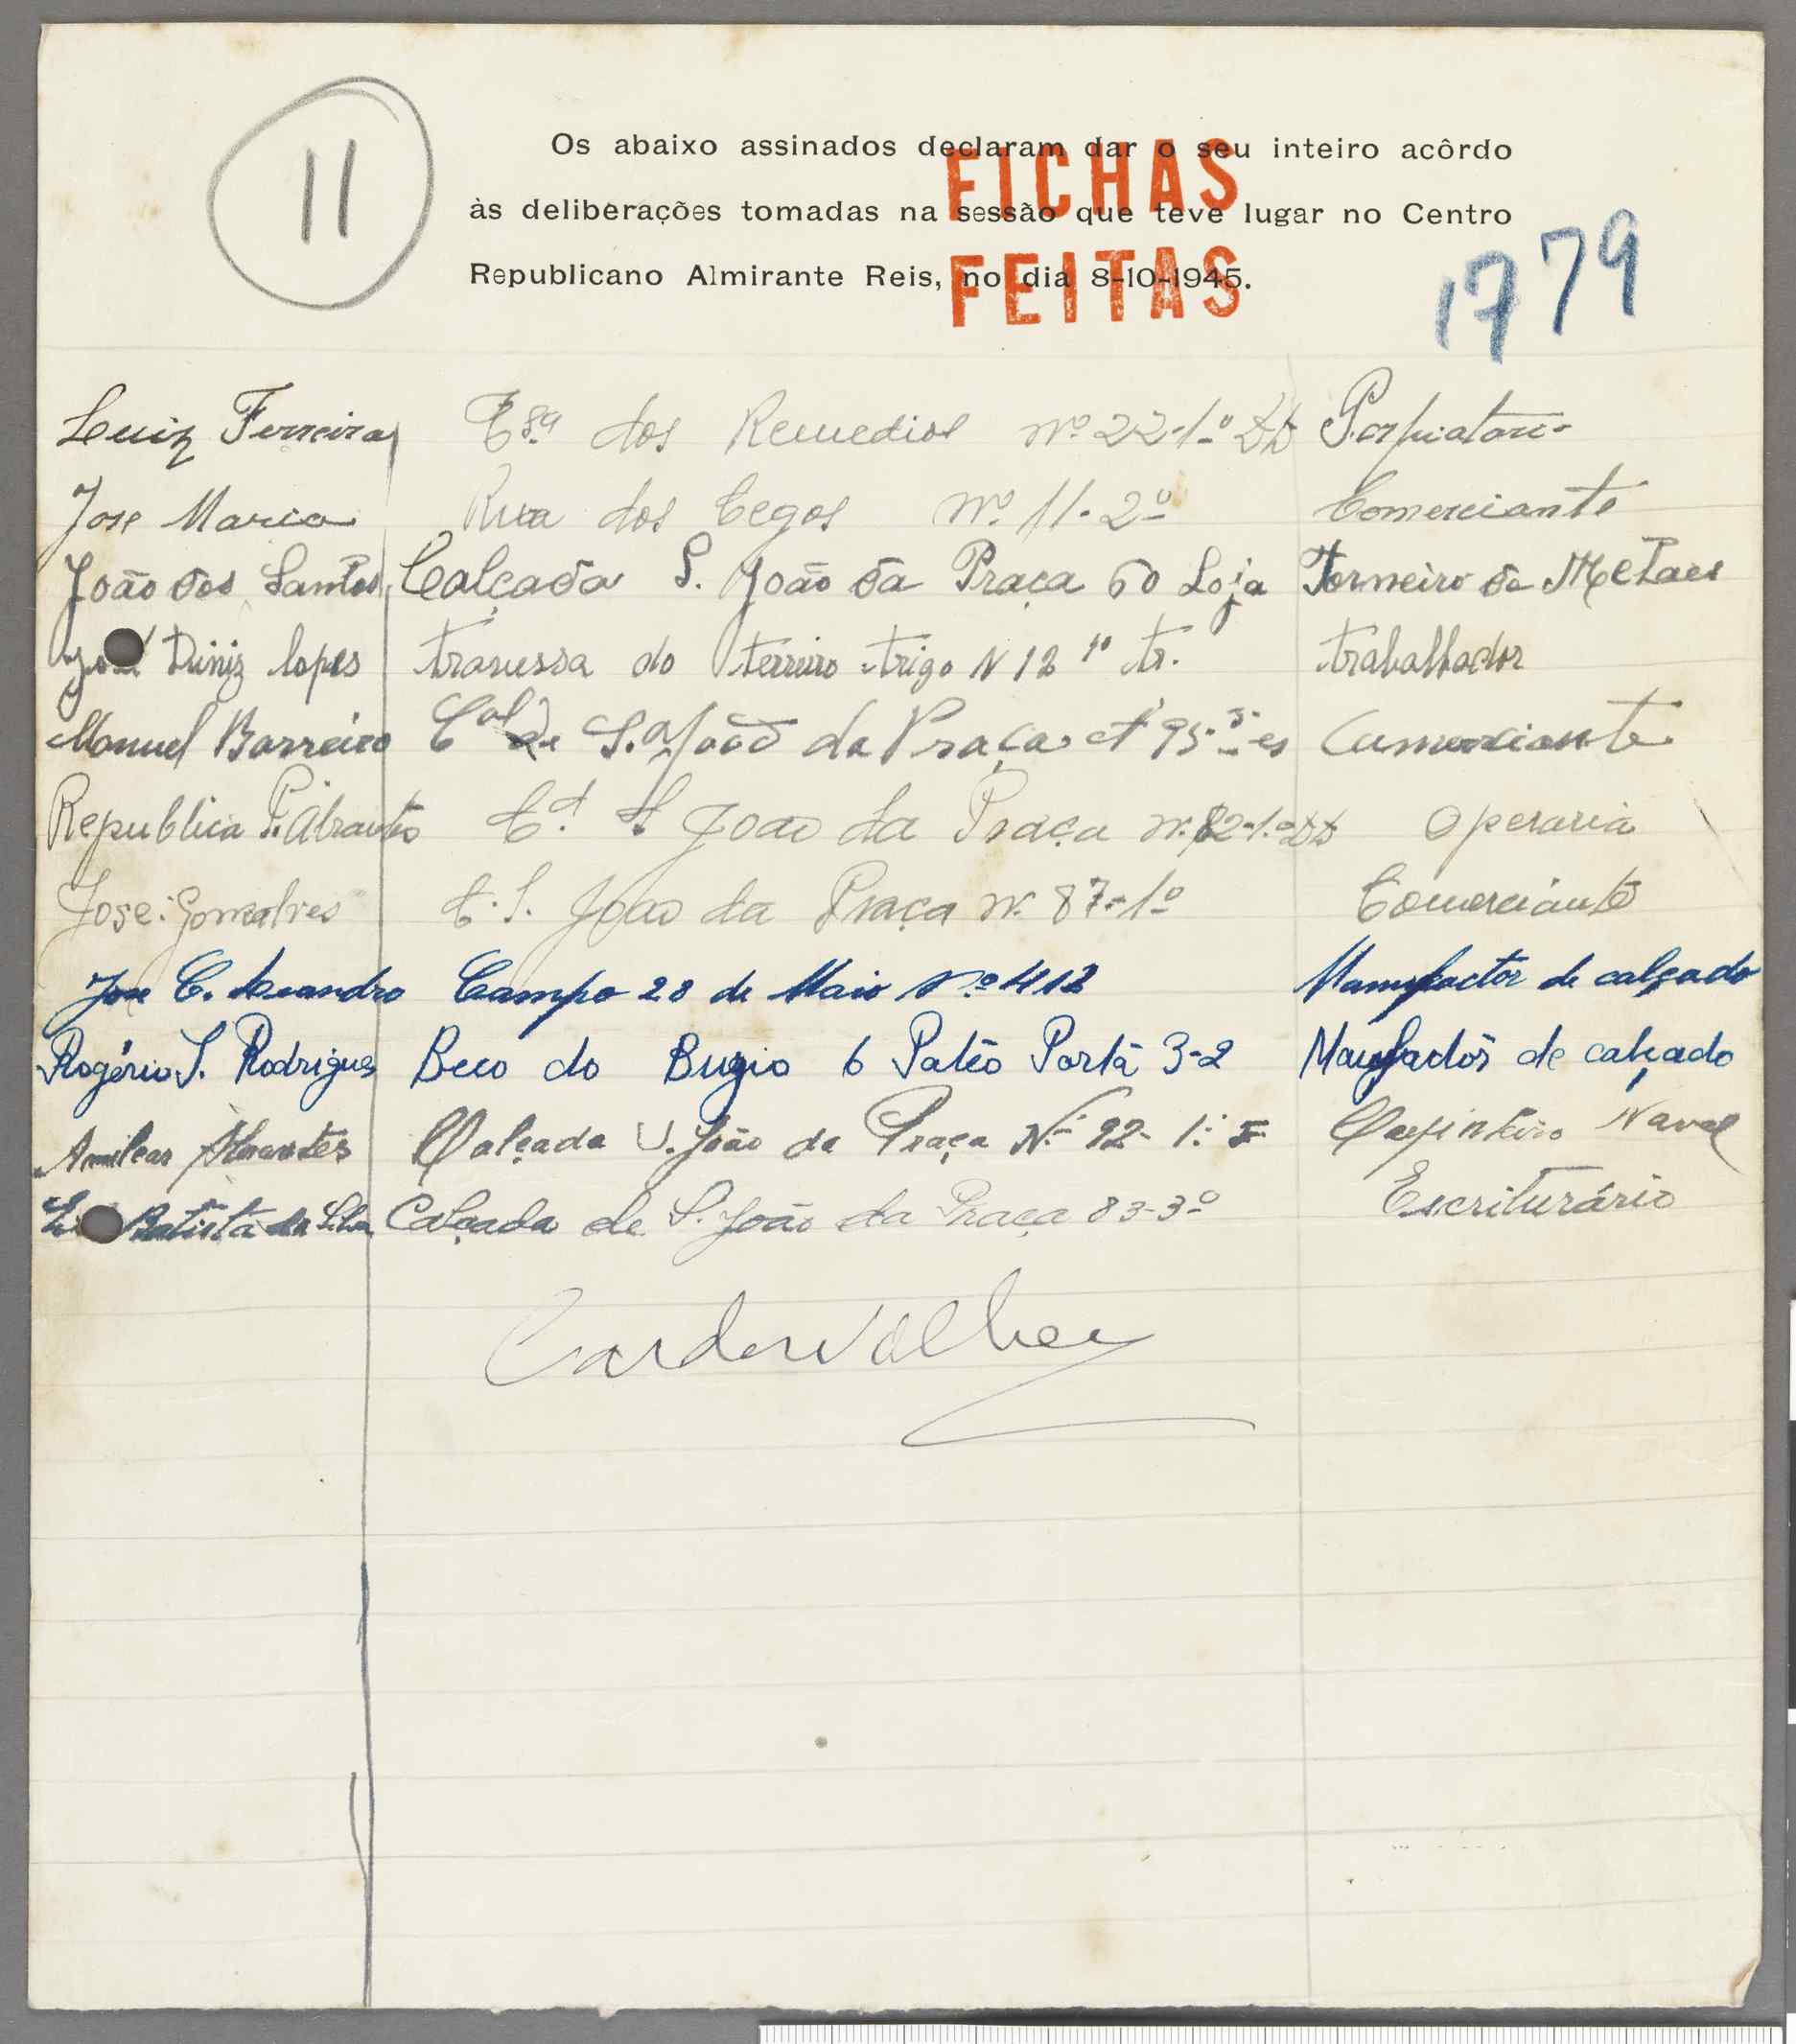 11
Os abaixo assinados declaram dar o seu inteiro acôrdo
às deliberações tomadas na sessão que teve lugar no Centro
Republicano Almirante Reis, no dia 8-10-1945.
FICHAS
FEITAS
1779
Luiz Ferreira dos Remedios nº 22-1º
Jose Maria Rua dos Cegos nº 11-2º Comerciante
João dos Santos Calçada S. João da Praça 60 Loja Torneiro de Metaes
José Diniz lopes travessa do terreiro trigo N 12 1º tr. trabalhador
Manuel Barreiro S. João da Praça 95 Cumerciante
Republica P. Abrantes Cd. S João da Praça nº 82-1.º Operaria
José Gonçalves C. S. João da Praça nº 87-1º Comerciante
Jose C. Leandro Campo 28 de Maio Nº 412 Manufactor de calçado
Rogério S. Rodrigues Beco do Bugio 6 Patéo Porta 3-2 de calçado
Amilcar Abrantes Calçada S. João da Praça Nº 92-1º Carpinteiro Naval
Batista da Silva Calçada de S. João da Praça 83-3º Escriturário